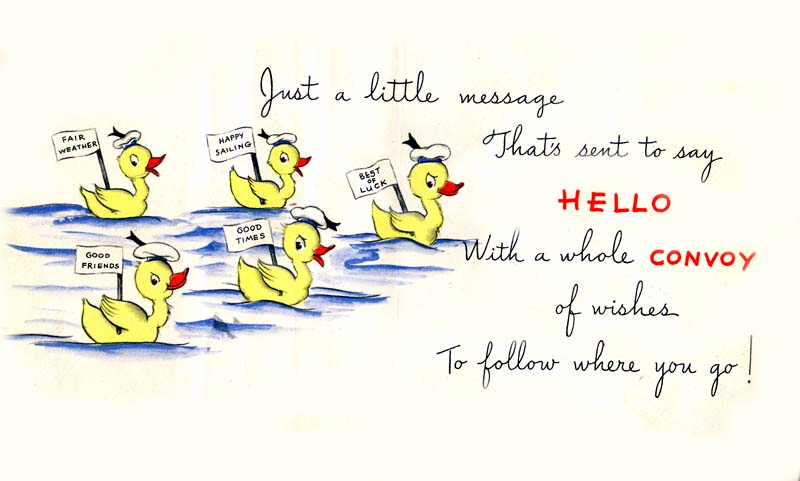 Just a little message
That's sent to say
HELLO
With a whole CONVOY
of wishes
To follow where you go!
FAIR
WEATHER
HAPPY
SAILING
BEST
OF
LUCK
GOOD
FRIENDS
GOOD
TIMES